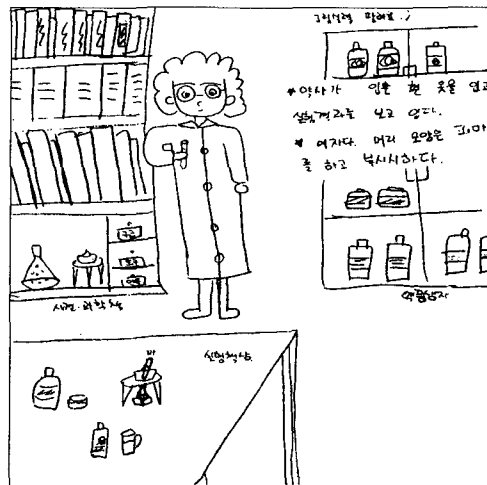 그림실력 딸려요 ;
* 약사가 입는 흰 옷을 입고
실험결과를 보고 있다.
* 여자다. 머리 모양은 파마
를 하고 부시시하다.
사전·과학책
약품상자
실험책상